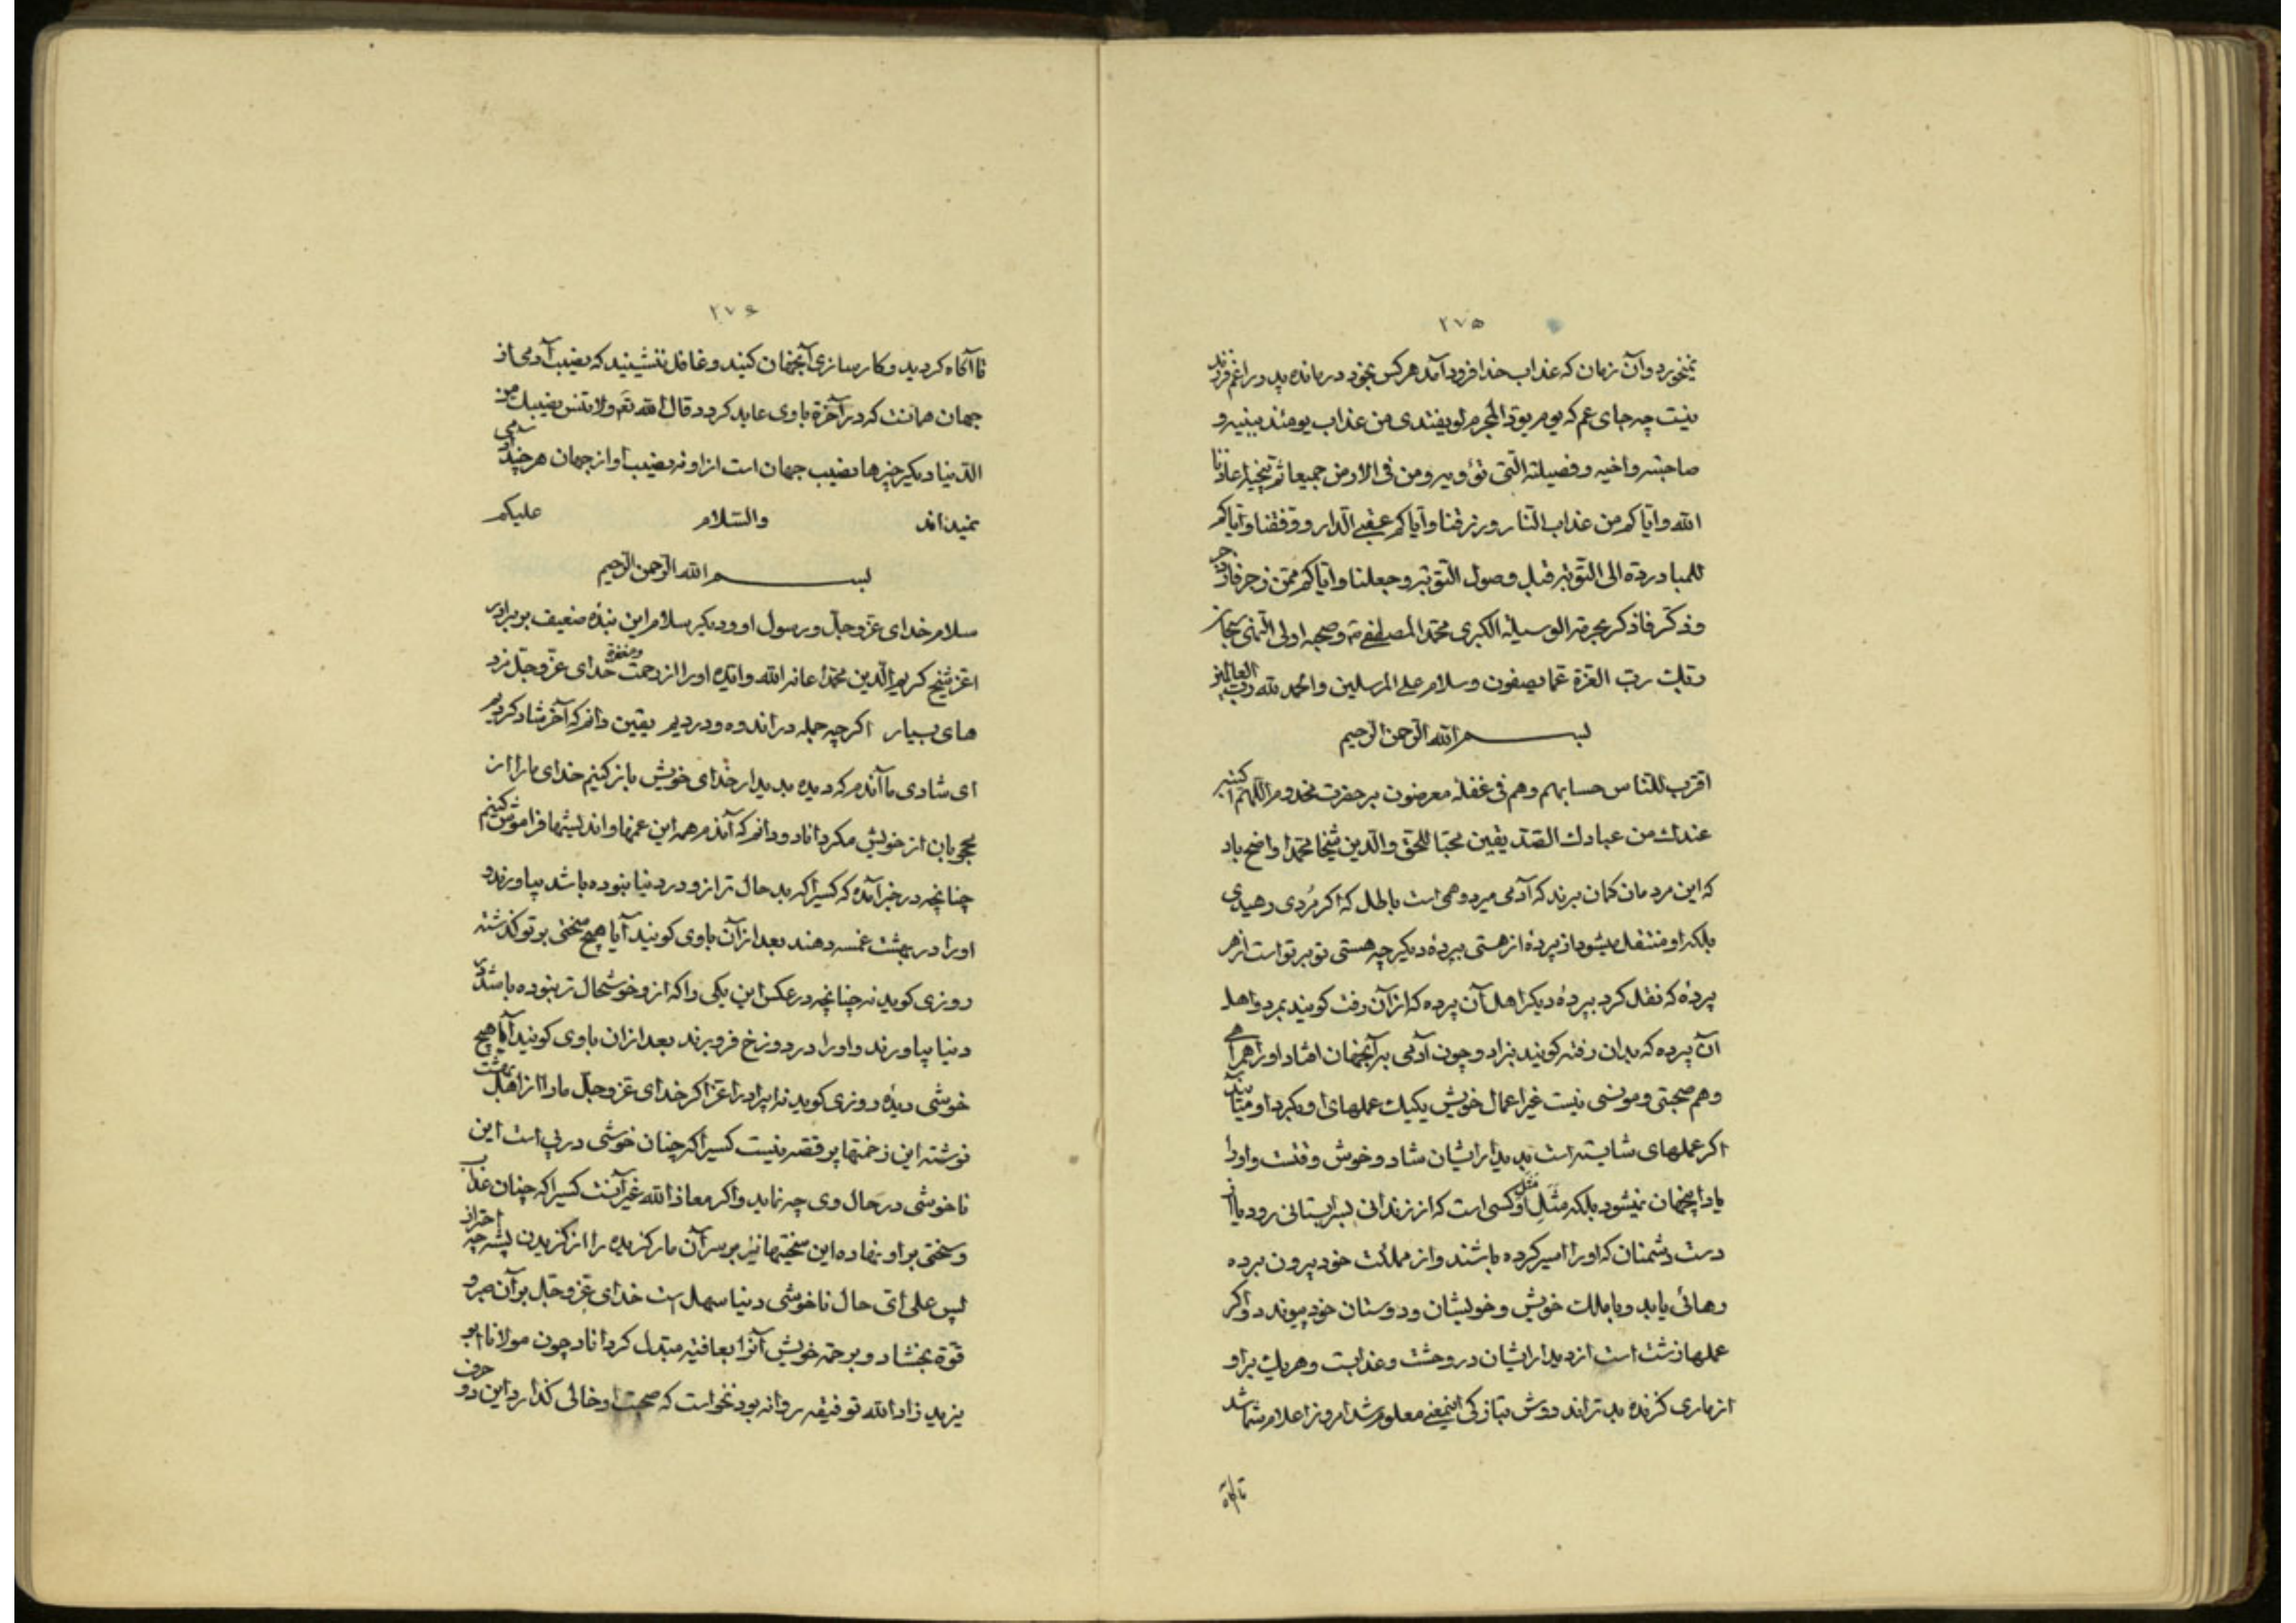 ۲۷۵
نمیخورد و آن زمان که عذاب خدا فرود آمد هر کس بخود درمانده پدر را غم فرزند
نیست چه جای غم که یوم یود المجرم لو یفتدی من عذاب یومئذ ببنیه و
صاحبته و اخیه و فصیلته التی تؤویه و من فی الارض جمیعا ثم ینجیه اعاذنا
الله و ایاکم من عذاب النار و رزقنا و ایاکم عقبی الدار و وفقنا و ایاکم
للمبادرة الی التوبة قبل وصول النوبة و جعلنا و ایاکم ممن زجر فانزجر
و ذکّر فاذکر بحرمة الوسیلة الکبری محمد المصطفی و صحبه اولی النهی سبحان
ربك رب العزة عما یصفون و سلام علی المرسلین و الحمد لله رب العالمین
بسم الله الرحمن الرحیم
اقترب للناس حسابهم و هم فی غفلة معرضون بر حضرت مخدوم اللهم اکتبه
عندك من عبادك الصدیقین محبا للحق و الدین شیخا محمدا واضح باد
که این مردمان کمان برند که آدمی میرد وهمی است باطل که اکر مُردی رهیدی
بلکه او منتقل میشود از پردهٔ از هستی بپردهٔ دیکر چه هستی تو بر تو است از هر
پردهٔ که نقل کرد بپردهٔ دیکر اهل آن پرده که از آن رفت کویند بمرد و اهل
آن پرده که بدان رفته کویند بزاد و چون آدمی بر آنجهان افتاد او را همراهی
و هم صحبتی و مونسی نیست غیر اعمال خویش یکیك عملهای او
اکر عملهای شایسته است بدیدار ایشان شاد و خوش وقتست و او را
یاد اینجهان نمیشود بلکه مَثَلِ او مثل کسی است که از زندانی بسرابستانی رود یا از
دست دشمنان که او را اسیر کرده باشند و از مملکت خود بیرون برده
رهائی یابد و با ملك خویش و خویشان و دوستان خود پیوندد و اکر
عملها زشت است از دیدار ایشان در وحشت و عذابست و هر یك بر او
از ماری کزنده بدتراند دوش بتازکی اینمعنی معلوم شد امروز اعلام شما شد
تا آکاه
۲۷۶
تا آکاه کردید و کارسازی آنجهان کنید و غافل ننشینید که نصیب آدمی از
جهان همانست که در آخرة باوی عاید کردد قال الله تع و لا تنس نصیبك من
الدنیا دیکر چیزها نصیب جهان است از او نه نصیب او از جهان هر چند آدمی
نمیداند والسلام علیکم
بسم الله الرحمن الرحیم
سلام خدای عز و جل و رسول او و دیکر سلام این بندهٔ ضعیف بر برادر
اعز شیخ کریم الدین محمد اعانه الله و ایده او را از رحمت و مغفرة خدای عز و جل مزد
های بسیار اکر چه جمله در اندوه و دردیم یقین دانم که آخر شاد کردیم
ای شادی ما آندم که دیده بدیدار خدای خویش باز کنیم خدای ما را از
محجوبان از خویش مکرداناد و دانم که آندم همه این غمها و اندیشها فراموش کنیم
چنانچه در خبر آمده که کسیرا که بدحال تر ازو در دنیا نبوده باشد بیاورند و
او را در بهشت غمسه دهند بعد از آن باوی کویند آیا هیچ سختی بر تو کذشته
روزی کوید نه چنانچه در عکس این یکی را که از و خوشحال تر نبوده باشد در
دنیا بیاورند و او را در دوزخ فرو برند بعد ازان باوی کویند آیا هیچ
خوشی دیدهٔ روزی کوید نه برادر اعز اکر خدای عز و جل ما را از اهل بهشت
نوشته این زحمتها پر قصه نیست کسیرا که چنان خوشی در پی است این
ناخوشی در حال وی چه نماید و اکر معاذ الله غیر آنست کسیرا که چنان عذاب
و سختی بر او نهاده این سختیها نیز بر سر آن مار کزیده را از کزیدن پشه چه احتراز
پس علی ای حال ناخوشی دنیا سهل است خدای عز و جل بر آن صبر و
قوة بخشاد و برحمة خویش آنرا بعافیة مبدل کرداناد چون مولانا ابو
یزید زاد الله توفیقه روانه بود نخواست که صحبت او خالی کذارد این دو حرف